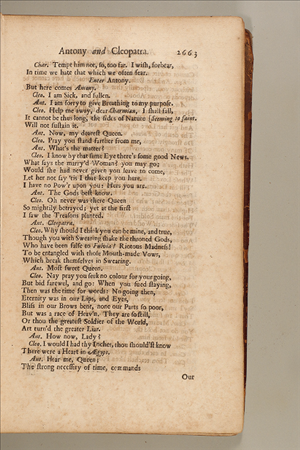 Antony and Cleopatra. 2663
Char. Tempt him not, so, too far. I wish, forbear,
In time we hate that which we often fear.
Enter Antony.
But here comes Antony.
Cleo. I am Sick, and sullen.
Ant. I am sorry to give Breathing to my purpose.
Cleo. Help me away, dear Charmian, I shall fall,
It cannot be thus long, the sides of Nature [Seeming to faint.
Will not sustain it.
Ant. Now, my dearest Queen.
Cleo. Pray you stand farther from me,
Ant. What's the matter?
Cleo. I know by that same Eye there's some good News.
What says the marry'd Woman? you may go;
Would she had never given you leave to come,
Let her not say 'tis I that keep you here.
I have no Pow'r upon you: Hers you are.
Ant. The Gods best know.
Cleo. Oh never was there Queen
So mightily betrayed; yet at the first
I saw the Treasons planted.
Ant. Cleopatra.
Cleo. Why should I think you can be mine, and true,
Though you with Swearing shake the throned Gods,
Who have been false to Fulvia? Riotous Madness!
To be entangled with those Mouth-made Vows,
Which break themselves in Swearing.
Ant. Most sweet Queen.
Cleo. Nay pray you seek no colour for your going,
But bid farewel, and go: When you sued staying,
Then was the time for words: No going then,
Eternity was in our Lips, and Eyes,
Bliss in our Brows bent, none our Parts so poor,
But was a race of Heav'n. They are so still,
Or thou the greatest Soldier of the World,
Art turn'd the greater Liar.
Ant. How now, Lady!
Cleo. I would I had thy Inches, thou should'st know
There were a Heart in Ægypt.
Ant. Hear me, Queen;
The strong necessity of time, commands
Our